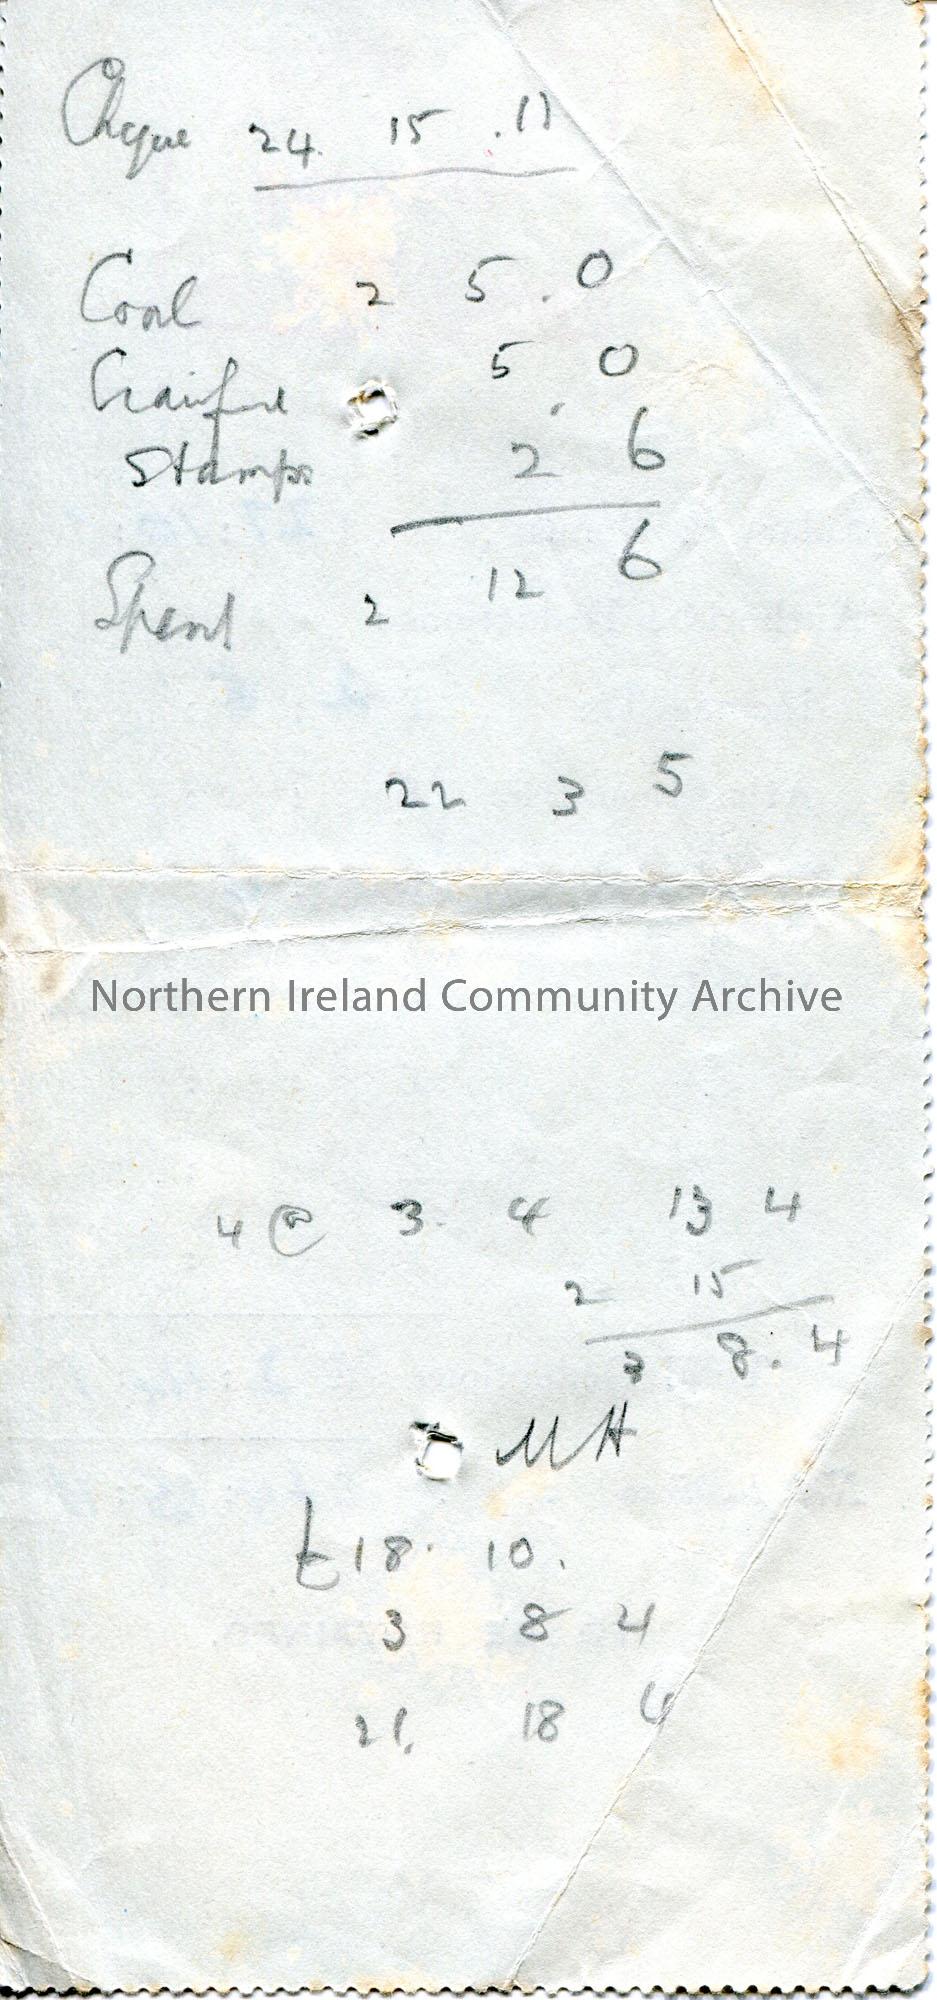 Cheque 24 15 .11
Coal 2 5 . 0
5 0
Stamps 2 6
Spent 2 12 6
22 3 5
Northern Ireland Community Archive
4 @ 3. 4 13 4
2 15
3 8. 4
MH
£18. 10.
3 8 4
21. 18 4